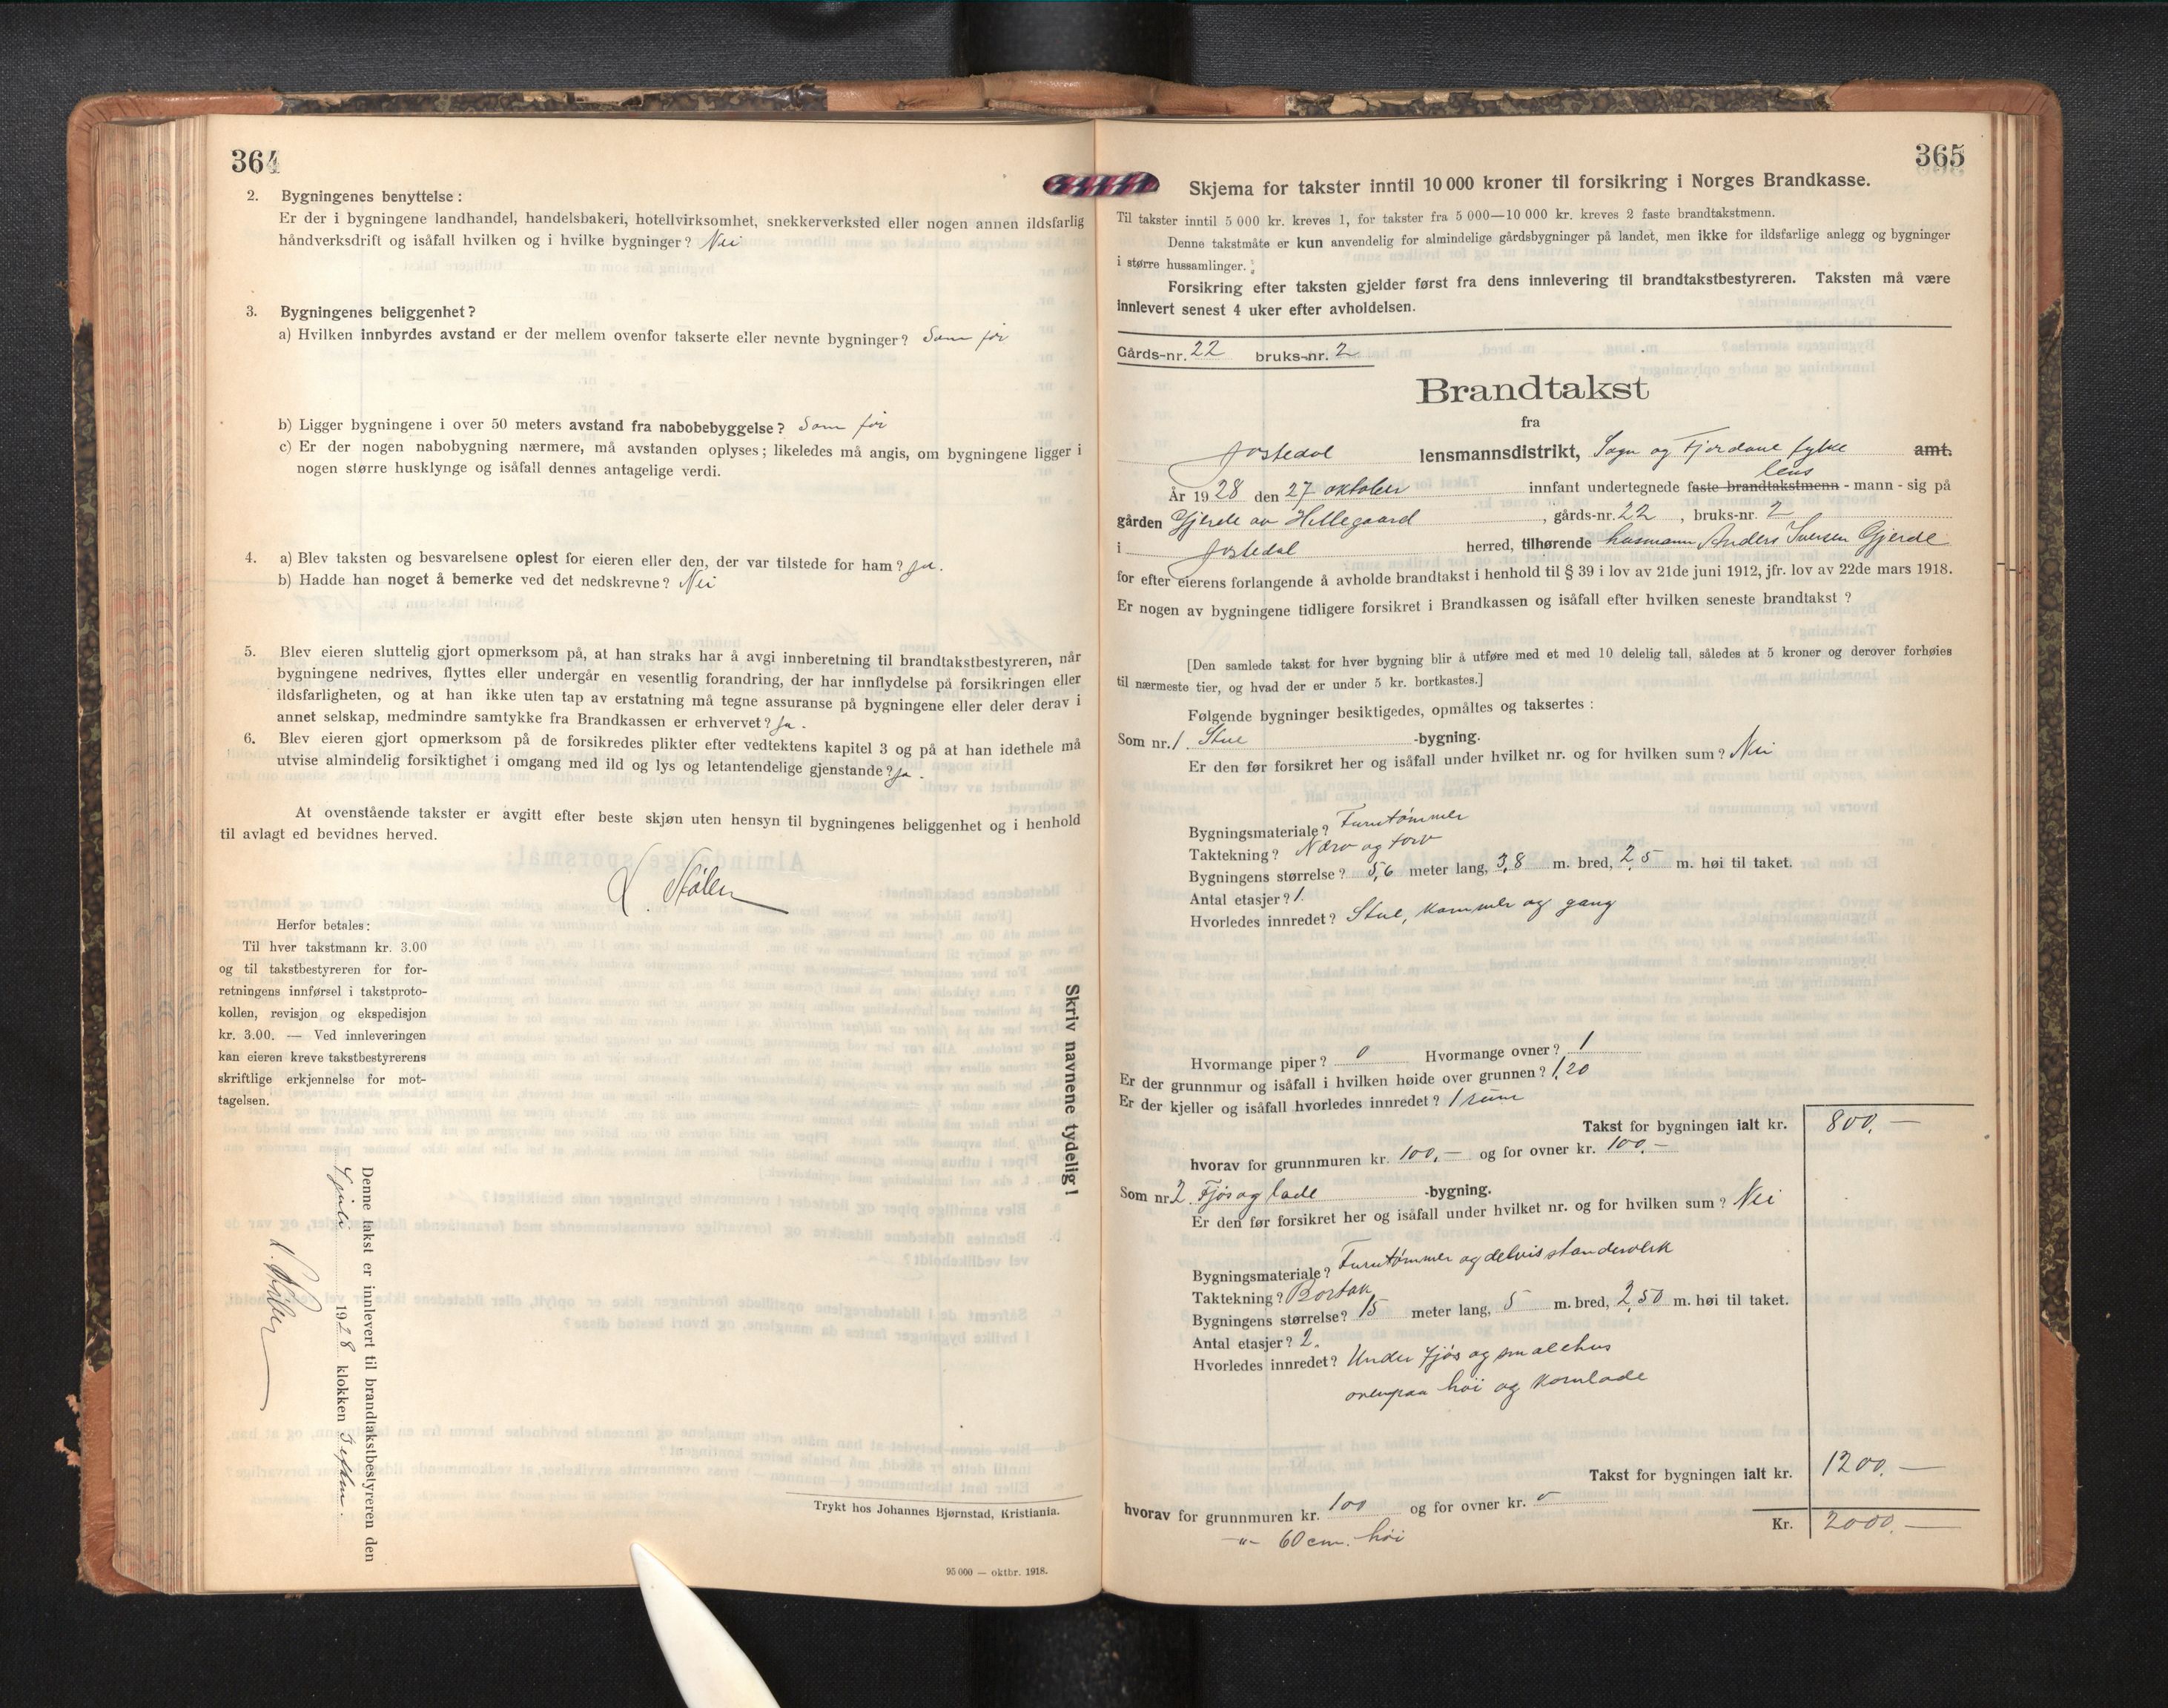 364
2. Bygningenes benyttelse :
Er der i bygningene landhandel, handelsbakeri, hotellvirksomhet, snekkerverksted eller nogen annen ildsfarlig
håndverksdrift og isåfall hvilken og i hvilke bygninger? Nei
3. Bygningenes beliggenhet?
a) Hvilken innbyrdes avstand er der mellem ovenfor takserte eller nevnte bygninger? Som før
b) Ligger bygningene i over 50 meters avstand fra nabobebyggelse? Som før
c) Er der nogen nabobygning nærmere, må avstanden oplyses; likeledes må angis, om bygningene ligger i
nogen større husklynge og isåfall dennes antagelige verdi.
4. a) Blev taksten og besvarelsene oplest for eieren eller den, der var tilstede for ham? Ja.
b) Hadde han noget å bemerke ved det nedskrevne? Nei
5. Blev eieren sluttelig gjort opmerksom på, at han straks har å avgi innberetning til brandtakstbestyreren, når
bygningene nedrives, flyttes eller undergår en vesentlig forandring, der har innflydelse på forsikringen eller
ildsfarligheten, og at han ikke uten tap av erstatning må tegne assuranse på bygningene eller deler derav i
annet selskap, medmindre samtykke fra Brandkassen er erhvervet? Ja.
6. Blev eieren gjort opmerksom på de forsikredes plikter efter vedtektens kapitel 3 og på at han idethele må
utvise almindelig forsiktighet i omgang med ild og lys og letantendelige gjenstande? Ja.
At ovenstående takster er avgitt efter beste skjøn uten hensyn til bygningenes beliggenhet og i henhold
til avlagt ed bevidnes herved.
Stølen
Herfor betales:
Til hver takstmann kr. 3.00
og til takstbestyreren for for-
retningens innførsel i takstproto-
kollen, revisjon og ekspedisjon
kr. 3.00. — Ved innleveringen
kan eieren kreve takstbestyrerens
skriftlige erkjennelse for mot-
tagelsen.
Skriv navnene tydelig!
Denne takst er innlevert til brandtakstbestyreren den
1928 klokken
Trykt hos Johannes Bjørnstad, Kristiania.
95 000 — oktbr. 1918.
365
Skjema for takster inntil 10 000 kroner til forsikring i Norges Brandkasse.
Til takster inntil 5 000 kr. kreves 1, for takster fra 5 000—10 000 kr. kreves 2 faste brandtakstmenn.
Denne takstmåte er kun anvendelig for almindelige gårdsbygninger på landet, men ikke for ildsfarlige anlegg og bygninger
i større hussamlinger.
Forsikring efter taksten gjelder først fra dens innlevering til brandtakstbestyreren. Taksten må være
innlevert senest 4 uker efter avholdelsen.
Gårds-nr. 22 bruks-nr. 2
Brandtakst
fra
Jostedal lensmannsdistrikt, Sogn og Fjordane fylke amt.
lens
År 1928 den 27 oktober innfant undertegnede faste brandtakstmenn - mann - sig på
gården Gjerde av Hellegaard, gårds-nr. 22, bruks-nr. 2
i Jostedal herred, tilhørende husmann Anders Iversen Gjerde
for efter eierens forlangende å avholde brandtakst i henhold til § 39 i lov av 21de juni 1912, jfr. lov av 22de mars 1918.
Er nogen av bygningene tidligere forsikret i Brandkassen og isåfall efter hvilken seneste brandtakst ?
[Den samlede takst for hver bygning blir å utføre med et med 10 delelig tall, således at 5 kroner og derover forhøies
til nærmeste tier, og hvad der er under 5 kr. bortkastes.]
Følgende bygninger besiktigedes, opmåltes og taksertes :
Som nr. 1. Stue -bygning.
Er den før forsikret her og isåfall under hvilket nr. og for hvilken sum ? Nei
Bygningsmateriale? Furutømmer
Taktekning? Næver og torv
Bygningens størrelse? 5,6 meter lang, 3,8 m. bred, 2,5 m. høi til taket.
Antal etasjer? 1.
Hvorledes innredet? Stue, kammer og gang
Hvormange piper? 0 Hvormange ovner? 1
Er der grunnmur og isåfall i hvilken høide over grunnen? 1,20
Er der kjeller og isåfall hvorledes innredet? 1 rum
Takst for bygningen ialt kr. 800,—
hvorav for grunnmuren kr. 100,— og for ovner kr. 100,—
Som nr. 2. Fjøs og lade -bygning.
Er den før forsikret her og isåfall under hvilket nr. og for hvilken sum ? Nei
Bygningsmateriale? Furutømmer og delvis standerverk
Taktekning? Bortak
Bygningens størrelse? 15 meter lang, 5 m. bred, 2,50 m. høi til taket.
Antal etasjer? 2.
Hvorledes innredet? Under fjøs og smalehus
ovenpaa høi og kornlade
Takst for bygningen ialt kr. 1200,—
hvorav for grunnmuren kr. 100 og for ovner kr. 0
Kr. 2000,—
-"- 60 cm. høi